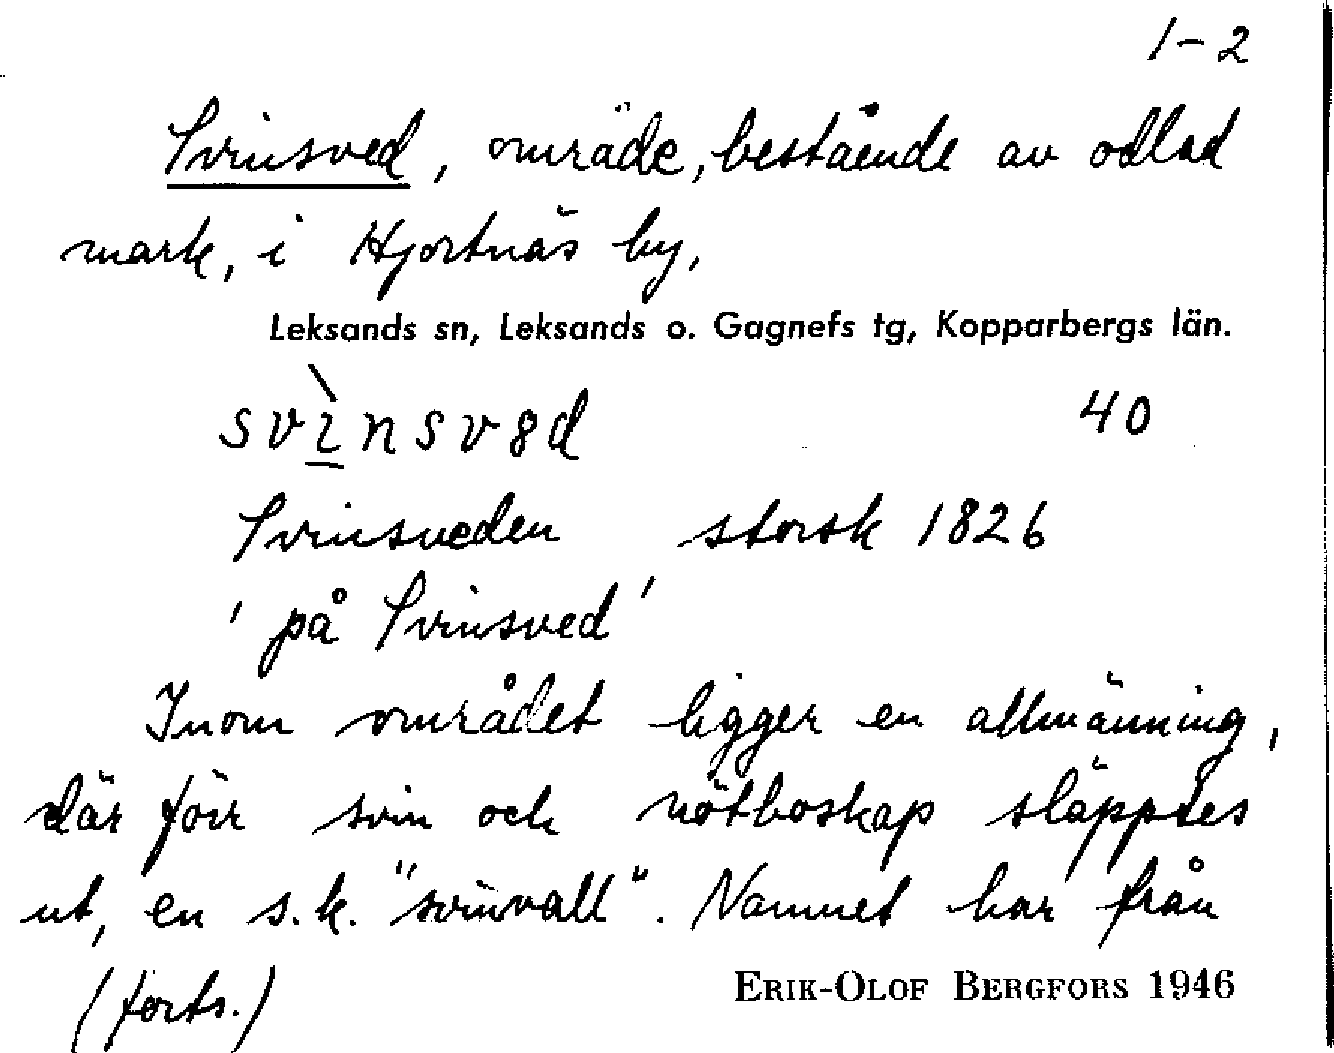 1-2
Svinsved, område, bestående av odlad
mark, i Hjortnäs by,
Leksands sn, Leksands o. Gagnefs tg, Kopparbergs län.
svìnsv8d 40
Svinsveden storsk 1826
'på Svinsved'
Inom området ligger en allmänning,
där förr svin och nötboskap släpptes
ut, en s.k. "svinvall". Namnet har från
(forts.)
ERIK-OLOF BERGFORS 1946